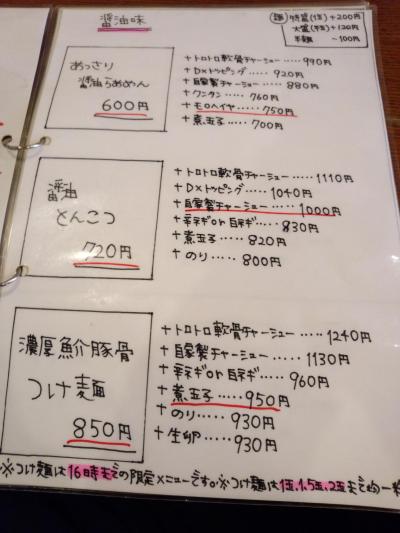 醤油味
麺 特盛(1玉)+200円
大盛(半玉)+120円
半麺 -100円
あっさり
醤油らぁめん
600円
+トロトロ軟骨チャーシュー‥‥990円
+DXトッピング‥‥920円
+自家製チャーシュー‥‥880円
+ワンタン‥‥760円
+モロヘイヤ‥‥750円
+煮玉子‥‥700円
醤油
とんこつ
720円
+トロトロ軟骨チャーシュー‥‥1110円
+DXトッピング‥‥1040円
+自家製チャーシュー‥‥1000円
+辛ネギor白ネギ‥‥830円
+煮玉子‥‥820円
+のり‥‥800円
濃厚魚介豚骨
つけ麺
850円
+トロトロ軟骨チャーシュー‥‥1240円
+自家製チャーシュー‥‥1130円
+辛ネギor白ネギ‥‥960円
+煮玉子‥‥‥950円
+のり‥‥‥930円
+生卵‥‥‥930円
※つけ麺は16時までの限定メニューです。※つけ麺は1玉、1.5玉、2玉まで均一料